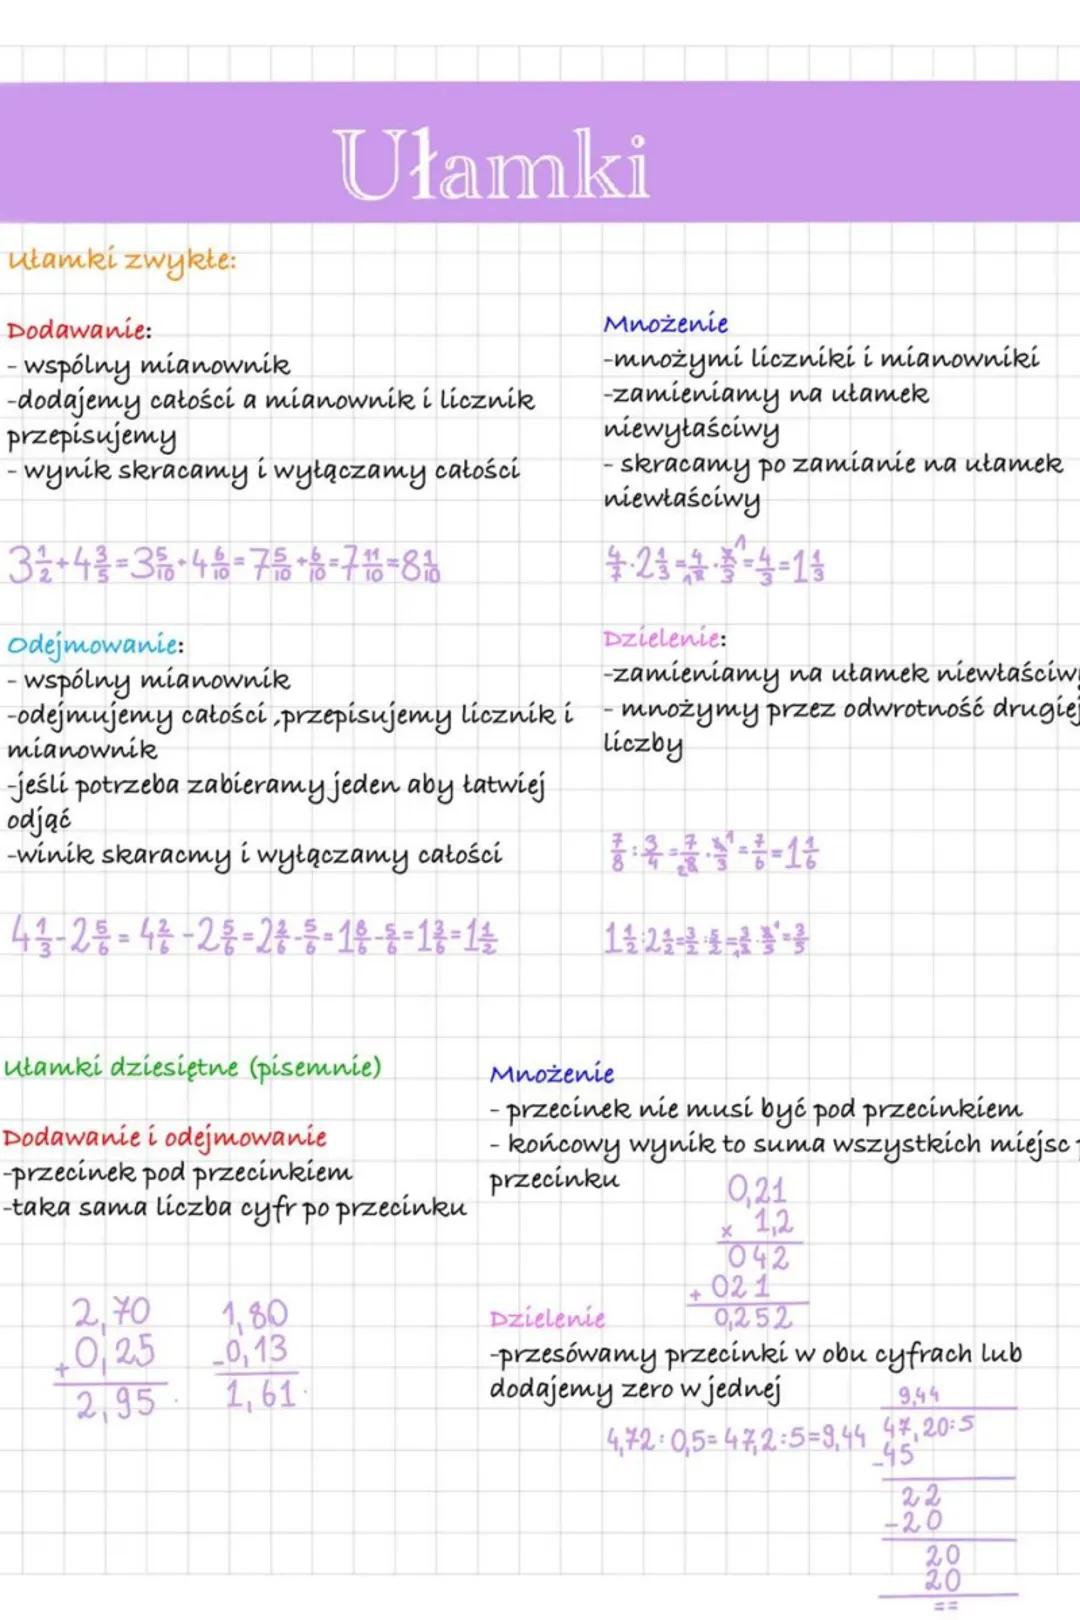 Ułamki
Ułamki zwykłe:
Dodawanie:
- wspólny mianownik
-dodajemy całości a mianownik i licznik
przepisujemy
- wynik skracamy i wyłączamy całości
3 1/2 + 4 3/5 = 3 5/10 + 4 6/10 = 7 5/10 + 6/10 = 7 11/10 = 8 1/10
Mnożenie
-mnożymi liczniki i mianowniki
-zamieniamy na ułamek
niewyłaściwy
- skracamy po zamianie na ułamek
niewłaściwy
4/7 · 2 1/3 = 4/7 · 7/3 = 4/3 = 1 1/3
Odejmowanie:
- wspólny mianownik
-odejmujemy całości ,przepisujemy licznik i
mianownik
-jeśli potrzeba zabieramy jeden aby łatwiej
odjąć
-winik skaracmy i wyłączamy całości
4 1/3 - 2 5/6 = 4 2/6 - 2 5/6 = 2 2/6 - 5/6 = 1 8/6 - 5/6 = 1 3/6 = 1 1/2
Dzielenie:
-zamieniamy na ułamek niewłaściwy
- mnożymy przez odwrotność drugiej
liczby
7/8 : 3/4 = 7/8 · 4/3 = 7/6 = 1 1/6
1 1/2 : 2 1/2 = 3/2 : 5/2 = 3/2 · 2/5 = 3/5
Ułamki dziesiętne (pisemnie)
Dodawanie i odejmowanie
-przecinek pod przecinkiem
-taka sama liczba cyfr po przecinku
2,70
+0,25
2,95
1,80
-0,13
1,61
Mnożenie
- przecinek nie musi być pod przecinkiem
- końcowy wynik to suma wszystkich miejsc
przecinku
0,21
x 1,2
042
+ 021
0,252
Dzielenie
-przesówamy przecinki w obu cyfrach lub
dodajemy zero w jednej
4,72 : 0,5 = 47,2 : 5 = 9,44
9,44
47,20:5
-45
22
-20
20
20
==